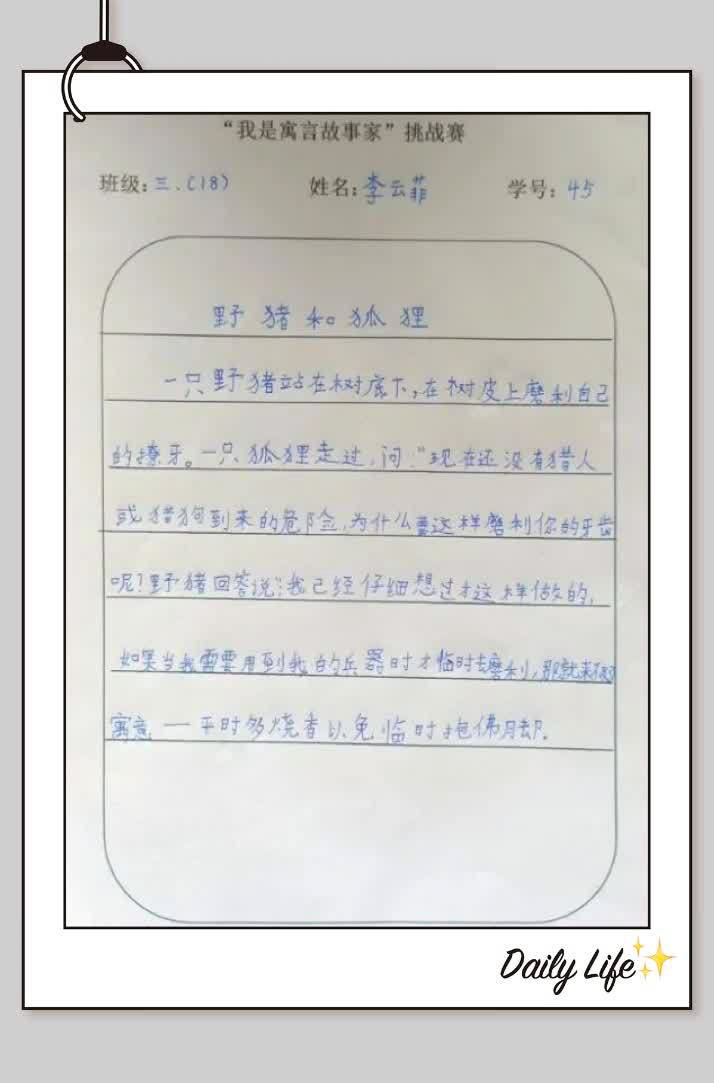 “我是寓言故事家”挑战赛
班级:三.(18) 姓名:李云菲 学号:45
野猪和狐狸
一只野猪站在树底下,在树皮上磨利自己
的撩牙。一只狐狸走过,问:“现在还没有猎人
或猎狗到来的危险,为什么要这样磨利你的牙齿
呢?野猪回答说:我已经仔细想过才这样做的,
如果当我需要用到我的兵器时才临时去磨利,那就来不及
寓意 — 平时多烧香以免临时抱佛脚.
Daily Life